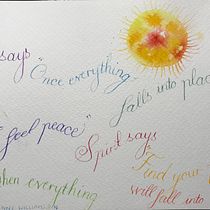 says
"Once everything
falls into plac
feel peace"
Spirit says
"Find your
when everything
will fall into